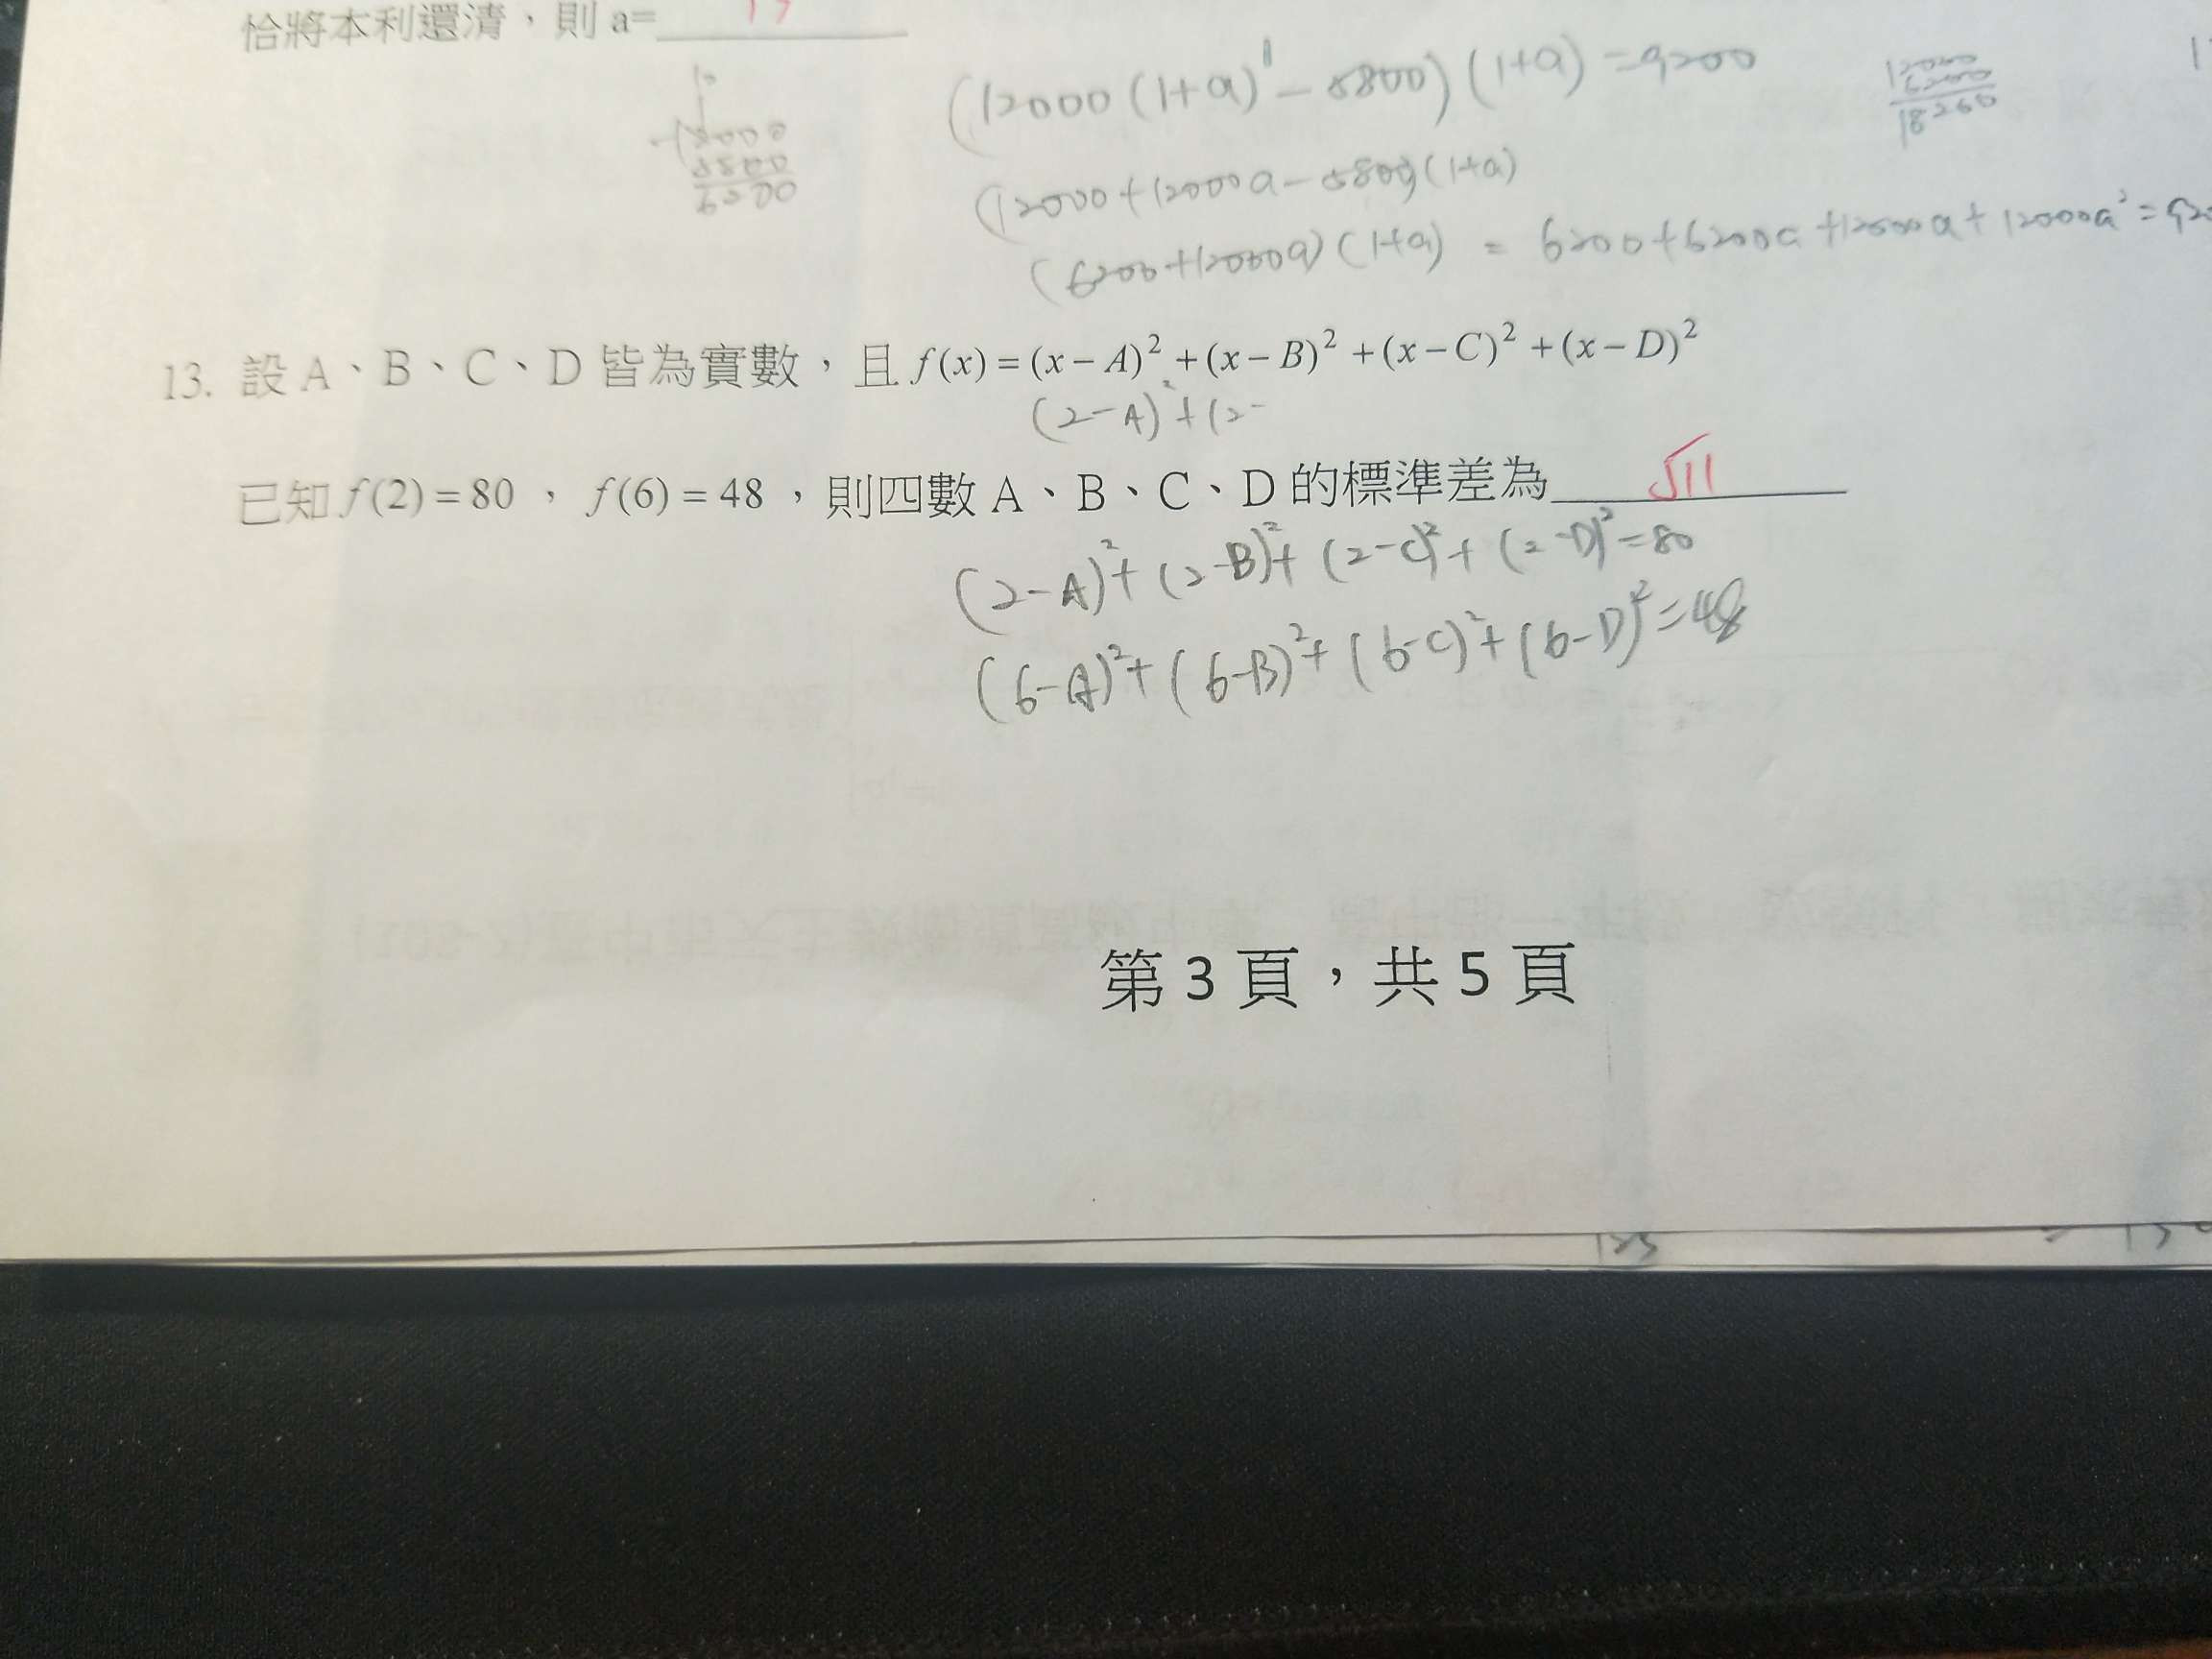 恰將本利還清,則 a= 17
(12000(1+a)¹-5800)(1+a)=9200
12000
6200
18200
12000
5800
6200
(12000+12000a-5800)(1+a)
(6200+12000a)(1+a) = 6200+6200a+12000a+12000a²=920
13. 設 A、B、C、D 皆為實數,且 f(x)=(x-A)²+(x-B)²+(x-C)²+(x-D)²
(2-A)²+(2-
已知 f(2)=80 , f(6)=48 ,則四數 A、B、C、D 的標準差為 √11
(2-A)²+(2-B)²+(2-C)²+(2-D)²=80
(6-A)²+(6-B)²+(6-C)²+(6-D)²=48
第 3 頁,共 5 頁